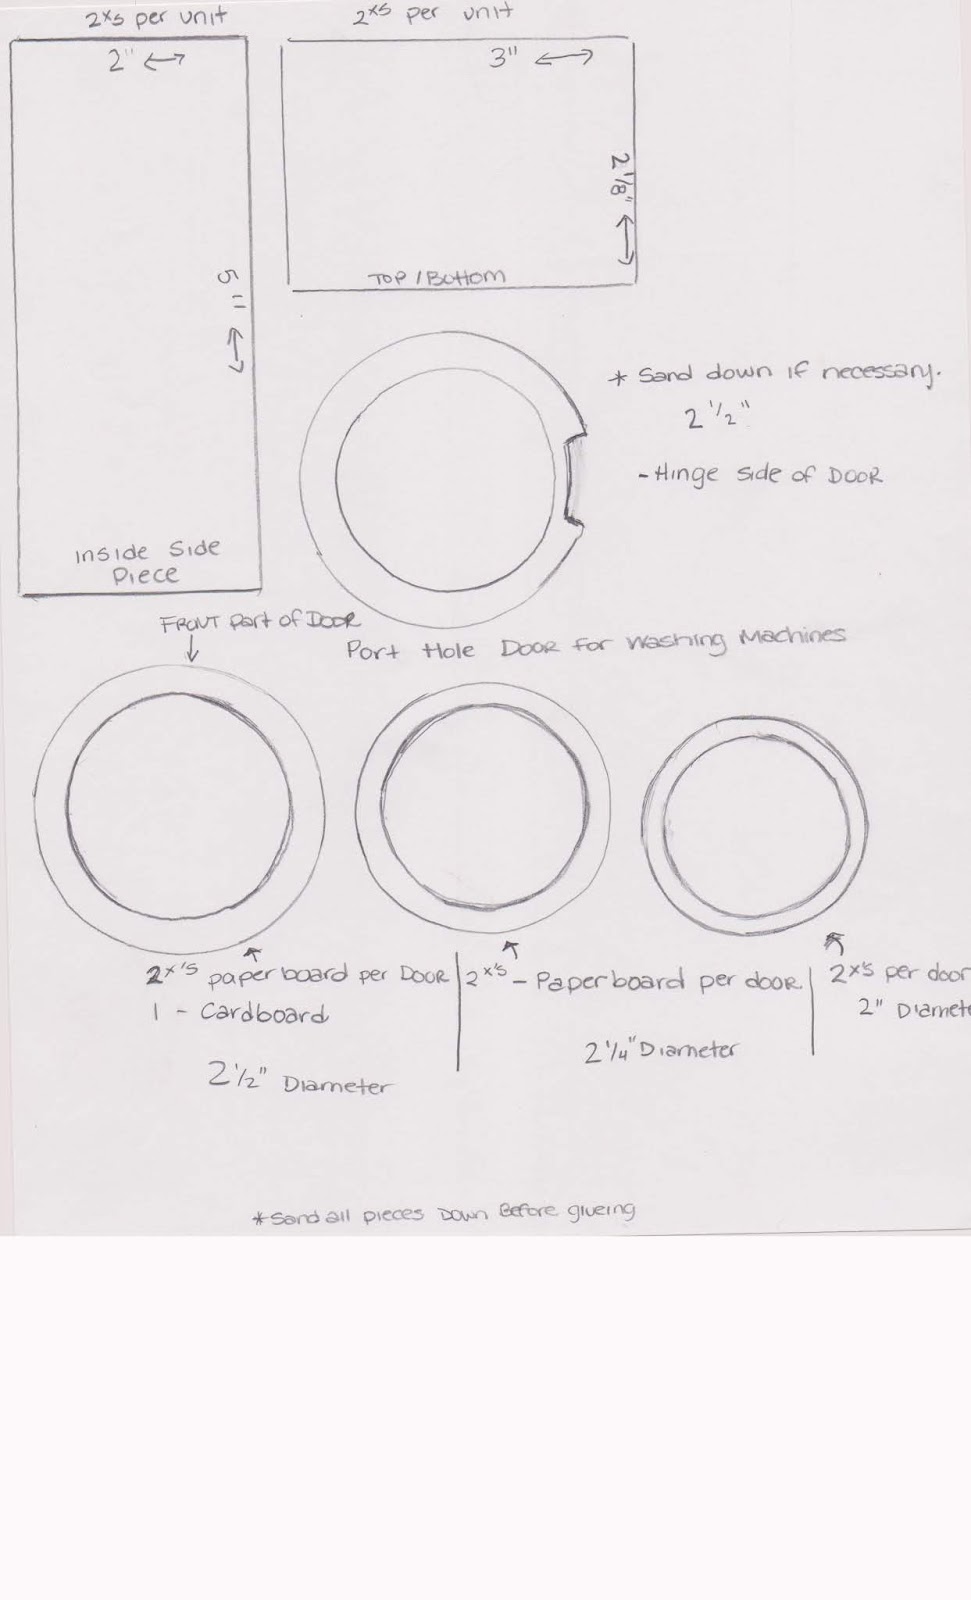 2xs per unit
2"
5"
Inside Side
Piece
2xs per unit
3"
2 1/8"
Top/Bottom
* Sand down if necessary.
2 1/2"
- Hinge side of DOOR
FRONT part of DOOR
Port Hole DOOR for Washing Machines
2x's paper board per DOOR
1 - Cardboard
2 1/2" Diameter
2x's - Paper board per door
2 1/4" Diameter
2x's per door
2" Diamete
*Sand all pieces Down Before glueing